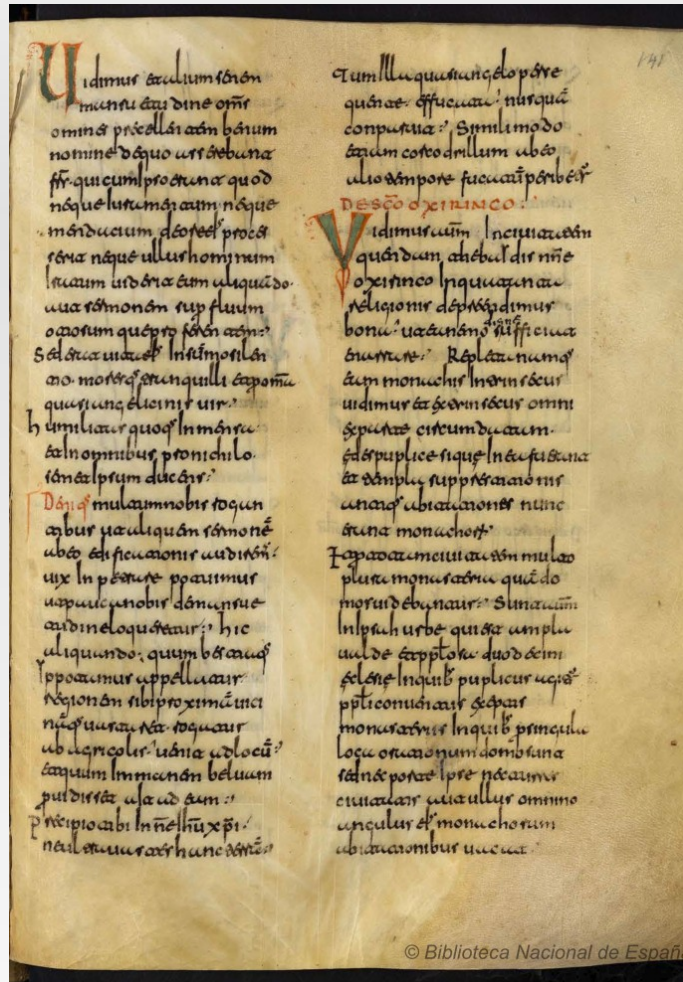 Uidimus et alium senem
mansuetudine om̄s
omines precellentem benum
nomine de quo asserebant
ffr̄ qui cum ipso erant quod
neque iuramentum neque
mendacium de ore eˢ proces
serit neque ullus hominum
iratum uiderit eum aliquādo
aut sermonem superfluum
otiosumque proferentem
Sed erat uita eˢ In sūmo silen
tio moresqˢ tranquilli et p omīa
quasi angelicinis uir
humilitas quoqˢ Inmensa
et In omnibus pro nichilo
se net Ipsum ducens
Deniqˢ multum nobis rogan
tibus ut aliquem sermonē
ab eo edificationis audirem̄
uix Inpetrare potuimus
ut pauca nobis de mansue
tudine loqueretur hic
aliquando quum bestia qˢ
ppotamus appellatur
regionem sibi proximā uici
nāqˢ uastaret rogatur
ab agricolis uenit ad locū
et quum Immanem beluam
puidisset ait ad eam
precipio tibi In n̄e ih̄u xp̄i
ne ulterius uastes hanc terrā
at Illa quasi angelo perse
quente effugata nusquā
conparuit Simili modo
etiam corcodrillum ab eo
alio tempore fugatū periberˢ
DE SC̄O OXIRINCO
Uidimus aūm In ciuitatem
quendam thebaidis n̄ne
oxirinco In qua tanta
religionis deprendimus
bona ut ea nemo sufficiat
enarrare Repleta namqˢ
eam monachis Intrinsecus
uidimus et extrinsecus omni
ex parte circumdatam
edes puplice si que In ea fuerant
et templa supprestitionis
antiqˢ abitationes nunc
erant monachorˢ
Et p totam ciuitatem multo
plura monasteria quā do
mos uidebantur Sunt aūm
In Ipsa hurbe qui est ampla
ualde et pp̄losa duodecim
eclesie In quibˢ puplicus agiˢ
pp̄li conuentus exceptis
monasteriis In quibˢ p singula
loca orationum domˢ sunt
sed nec porte Ipse nec turres
ciuitatis aut ullus omnino
angulus eˢ monachorum
abitationibus uacat
© Biblioteca Nacional de España